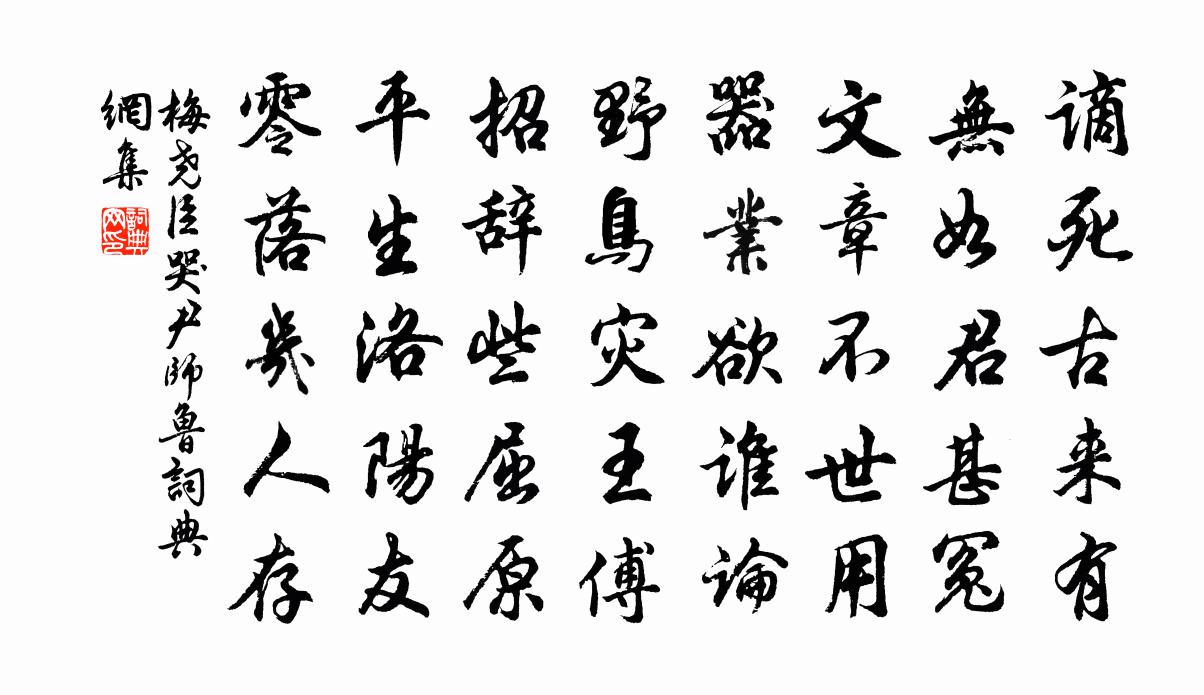 謫死古来有
無如君甚冤
文章不世用
器業欲誰論
野鳥災王傅
招辞些屈原
平生洛陽友
零落幾人存
梅尧臣哭尹師魯詞典
網集
詞典
网印